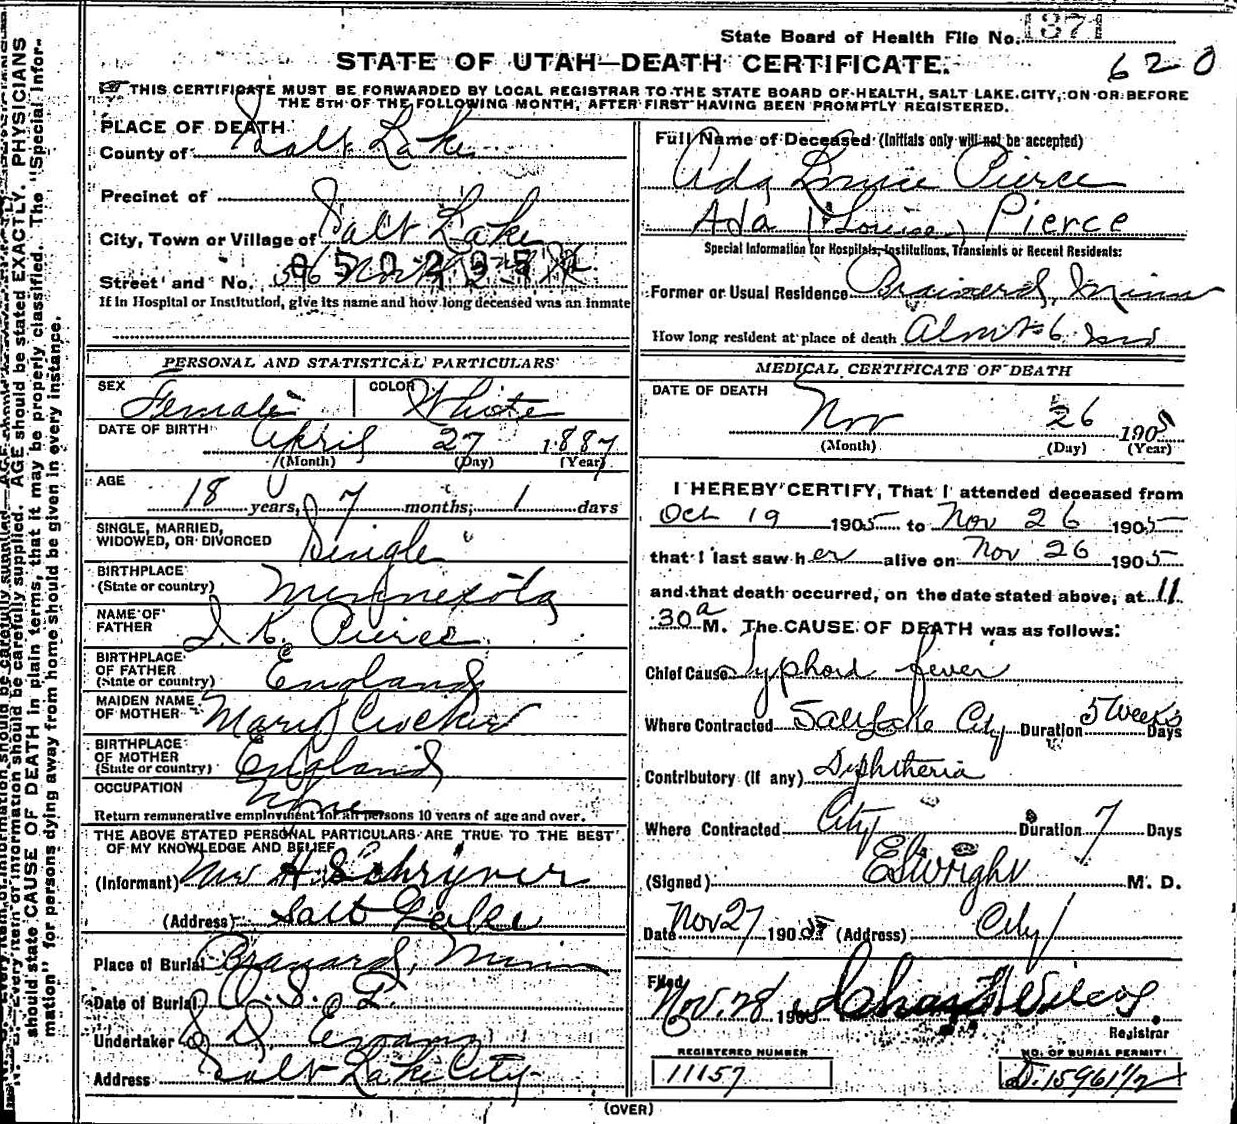 State Board of Health File No. 1371
STATE OF UTAH—DEATH CERTIFICATE.
620
THIS CERTIFICATE MUST BE FORWARDED BY LOCAL REGISTRAR TO THE STATE BOARD OF HEALTH, SALT LAKE CITY, ON OR BEFORE
THE 5TH OF THE FOLLOWING MONTH, AFTER FIRST HAVING BEEN PROMPTLY REGISTERED.
PLACE OF DEATH
County of Salt Lake
Precinct of
City, Town or Village of Salt Lake
Street and No.
If in Hospital or Institution, give its name and how long deceased was an inmate
PERSONAL AND STATISTICAL PARTICULARS
SEX Female COLOR White
DATE OF BIRTH April 27 1887
(Month) (Day) (Year)
AGE 18 years, 7 months, 1 days
SINGLE, MARRIED,
WIDOWED, OR DIVORCED Single
BIRTHPLACE
(State or country) Minnesota
NAME OF
FATHER K. Pierce
BIRTHPLACE
OF FATHER
(State or country) England
MAIDEN NAME
OF MOTHER Mary Crocker
BIRTHPLACE
OF MOTHER
(State or country) England
OCCUPATION None
Return remunerative employment for all persons 10 years of age and over.
THE ABOVE STATED PERSONAL PARTICULARS ARE TRUE TO THE BEST
OF MY KNOWLEDGE AND BELIEF
(Informant) H. Schryver
(Address) Salt Lake
Place of Burial Minn
Date of Burial
Undertaker Evans
Address Salt Lake City
Full Name of Deceased (Initials only will not be accepted)
Ada Louise Pierce
Ada (Louise) Pierce
Special Information for Hospitals, Institutions, Transients or Recent Residents:
Former or Usual Residence Brainerd, Minn
How long resident at place of death 6
MEDICAL CERTIFICATE OF DEATH
DATE OF DEATH
Nov 26 1905
(Month) (Day) (Year)
I HEREBY CERTIFY, That I attended deceased from
Oct 19 1905 to Nov 26 1905
that I last saw her alive on Nov 26 1905
and that death occurred, on the date stated above, at 11
30 a M. The CAUSE OF DEATH was as follows:
Chief Cause Typhoid fever
Where Contracted Salt Lake City Duration 5 Weeks Days
Contributory (if any) Diphtheria
Where Contracted City Duration 7 Days
(Signed) E S Wright M. D.
Date Nov 27 1905 (Address) City
Filed Nov. 28 1905 Wilcox
Registrar
REGISTERED NUMBER
11157
NO. OF BURIAL PERMIT
D. 15961 1/2
(OVER)
AGE should be stated EXACTLY. PHYSICIANS
should state CAUSE OF DEATH in plain terms, that it may be properly classified. The "Special Infor-
mation" for persons dying away from home should be given in every instance.